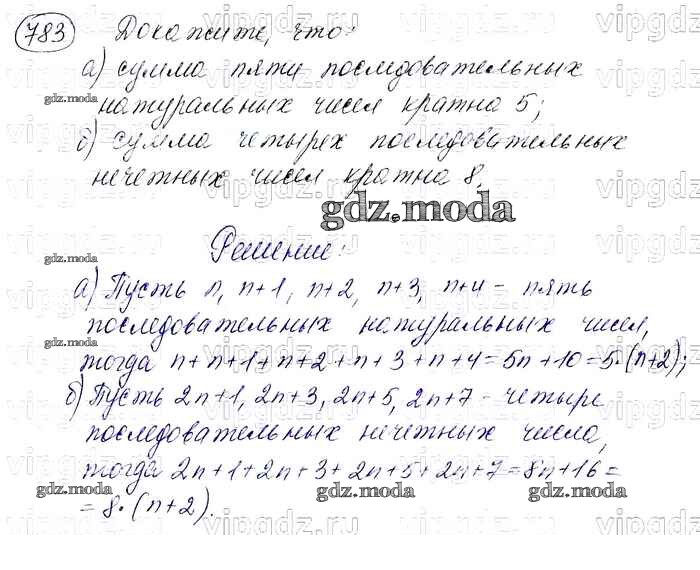 783 Докажите, что:
а) сумма пяти последовательных
натуральных чисел кратна 5;
б) сумма четырех последовательных
нечетных чисел кратна 8.
gdz.moda
Решение:
а) Пусть n, n+1, n+2, n+3, n+4 - пять
последовательных натуральных чисел,
тогда n+n+1+n+2+n+3+n+4=5n+10=5·(n+2);
б) Пусть 2n+1, 2n+3, 2n+5, 2n+7 - четыре
последовательных нечетных числа,
тогда 2n+1+2n+3+2n+5+2n+7=8n+16=
=8·(n+2).
gdz.moda gdz.moda gdz.moda
vipgdz.ru